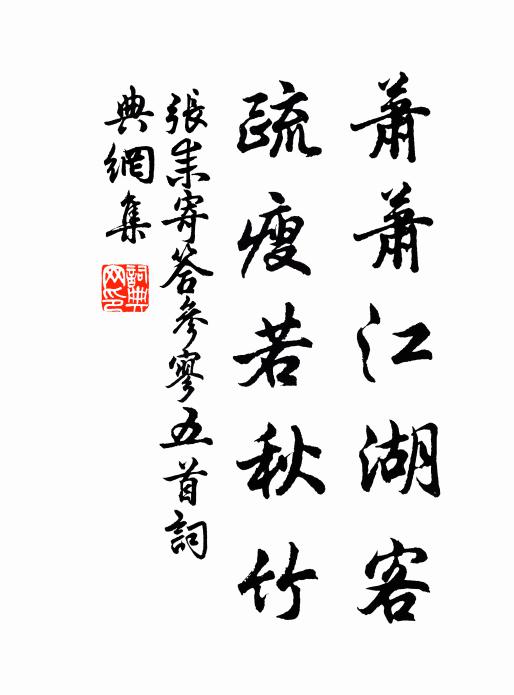 蕭蕭江湖客
疏瘦若秋竹
張耒寄答參寥五首詞
典網集
詞典
网印